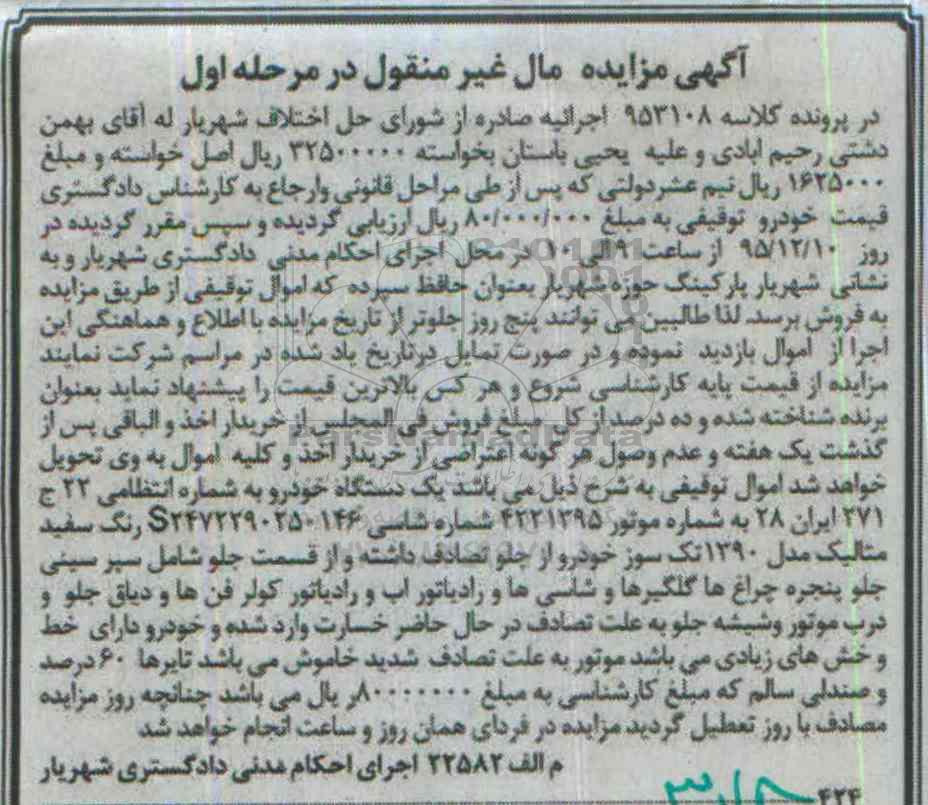 آگهی مزایده مال غیر منقول در مرحله اول
در پرونده کلاسه ۹۵۳۱۰۸ اجرائیه صادره از شورای حل اختلاف شهریار له آقای بهمن
دشتی رحیم ابادی و علیه یحیی باستان بخواسته ۳۲۵۰۰۰۰۰ ریال اصل خواسته و مبلغ
۱۶۲۵۰۰۰ ریال نیم عشردولتی که پس از طی مراحل قانونی وارجاع به کارشناس دادگستری
قیمت خودرو توقیفی به مبلغ ۸۰/۰۰۰/۰۰۰ ریال ارزیابی گردیده و سپس مقرر گردیده در
روز ۹۵/۱۲/۱۰ از ساعت ۹ الی ۱۰ در محل اجرای احکام مدنی دادگستری شهریار و به
نشانی شهریار پارکینگ حوزه شهریار بعنوان حافظ سپرده که اموال توقیفی از طریق مزایده
به فروش برسد. لذا طالبین می توانند پنج روز جلوتر از تاریخ مزایده با اطلاع و هماهنگی این
اجرا از اموال بازدید نموده و در صورت تمایل درتاریخ یاد شده در مراسم شرکت نمایند
مزایده از قیمت پایه کارشناسی شروع و هر کس بالاترین قیمت را پیشنهاد نماید بعنوان
برنده شناخته شده و ده درصد از کل مبلغ فروش فی المجلس از خریدار اخذ و الباقی پس از
گذشت یک هفته و عدم وصول هر گونه اعتراضی از خریدار اخذ و کلیه اموال به وی تحویل
خواهد شد اموال توقیفی به شرح ذیل می باشد یک دستگاه خودرو به شماره انتظامی ۲۲ ج
۲۷۱ ایران ۲۸ به شماره موتور ۴۲۲۱۳۹۵ شماره شاسی S۲۴۷۲۲۹۰۲۵۰۱۴۶ رنگ سفید
متالیک مدل ۱۳۹۰ تک سوز خودرو از جلو تصادف داشته و از قسمت جلو شامل سپر سینی
جلو پنجره چراغ ها گلگیرها و شاسی ها و رادیاتور اب و رادیاتور کولر فن ها و دیاق جلو و
درب موتور وشیشه جلو به علت تصادف در حال حاضر خسارت وارد شده و خودرو دارای خط
و خش های زیادی می باشد موتور به علت تصادف شدید خاموش می باشد تایرها ۶۰ درصد
و صندلی سالم که مبلغ کارشناسی به مبلغ ۸۰۰۰۰۰۰۰ر یال می باشد چنانچه روز مزایده
مصادف با روز تعطیل گردید مزایده در فردای همان روز و ساعت انجام خواهد شد
م الف ۲۲۵۸۲ اجرای احکام مدنی دادگستری شهریار
۴۲۴
ParsNamadData